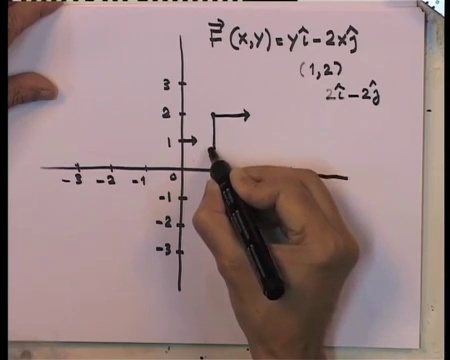 F⃗ (x,y) = yî - 2xĵ
(1,2)
2î - 2ĵ
3
2
1
-3 -2 -1 0
-1
-2
-3